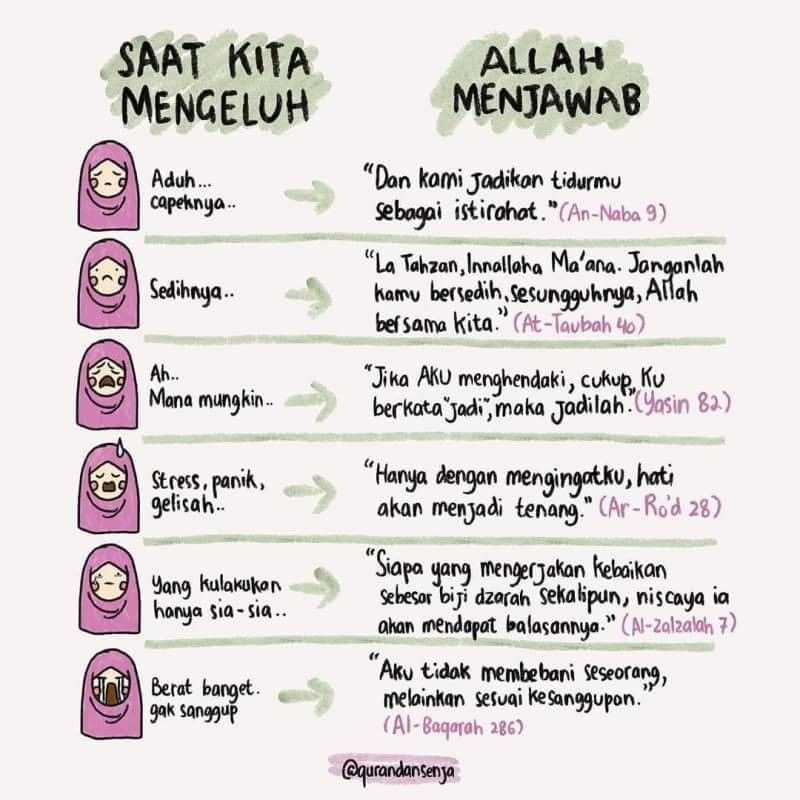 SAAT KITA
MENGELUH
ALLAH
MENJAWAB
Aduh...
capeknya..
"Dan kami jadikan tidurmu
sebagai istirahat." (An-Naba 9)
Sedihnya..
"La Tahzan, Innallaha Ma'ana. Janganlah
kamu bersedih, sesungguhnya, Allah
bersama kita." (At-Taubah 40)
Ah..
Mana mungkin..
"Jika AKU menghendaki, cukup Ku
berkata "jadi", maka jadilah". (Yasin 82)
Stress, panik,
gelisah..
"Hanya dengan mengingatku, hati
akan menjadi tenang." (Ar-Ro'd 28)
Yang kulakukan
hanya sia-sia..
"Siapa yang mengerjakan kebaikan
sebesar biji dzarah sekalipun, niscaya ia
akan mendapat balasannya." (Al-Zalzalah 7)
Berat banget.
gak sanggup
"Aku tidak membebani seseorang,
melainkan sesuai kesanggupan."
(Al-Baqarah 286)
@qurandansenja